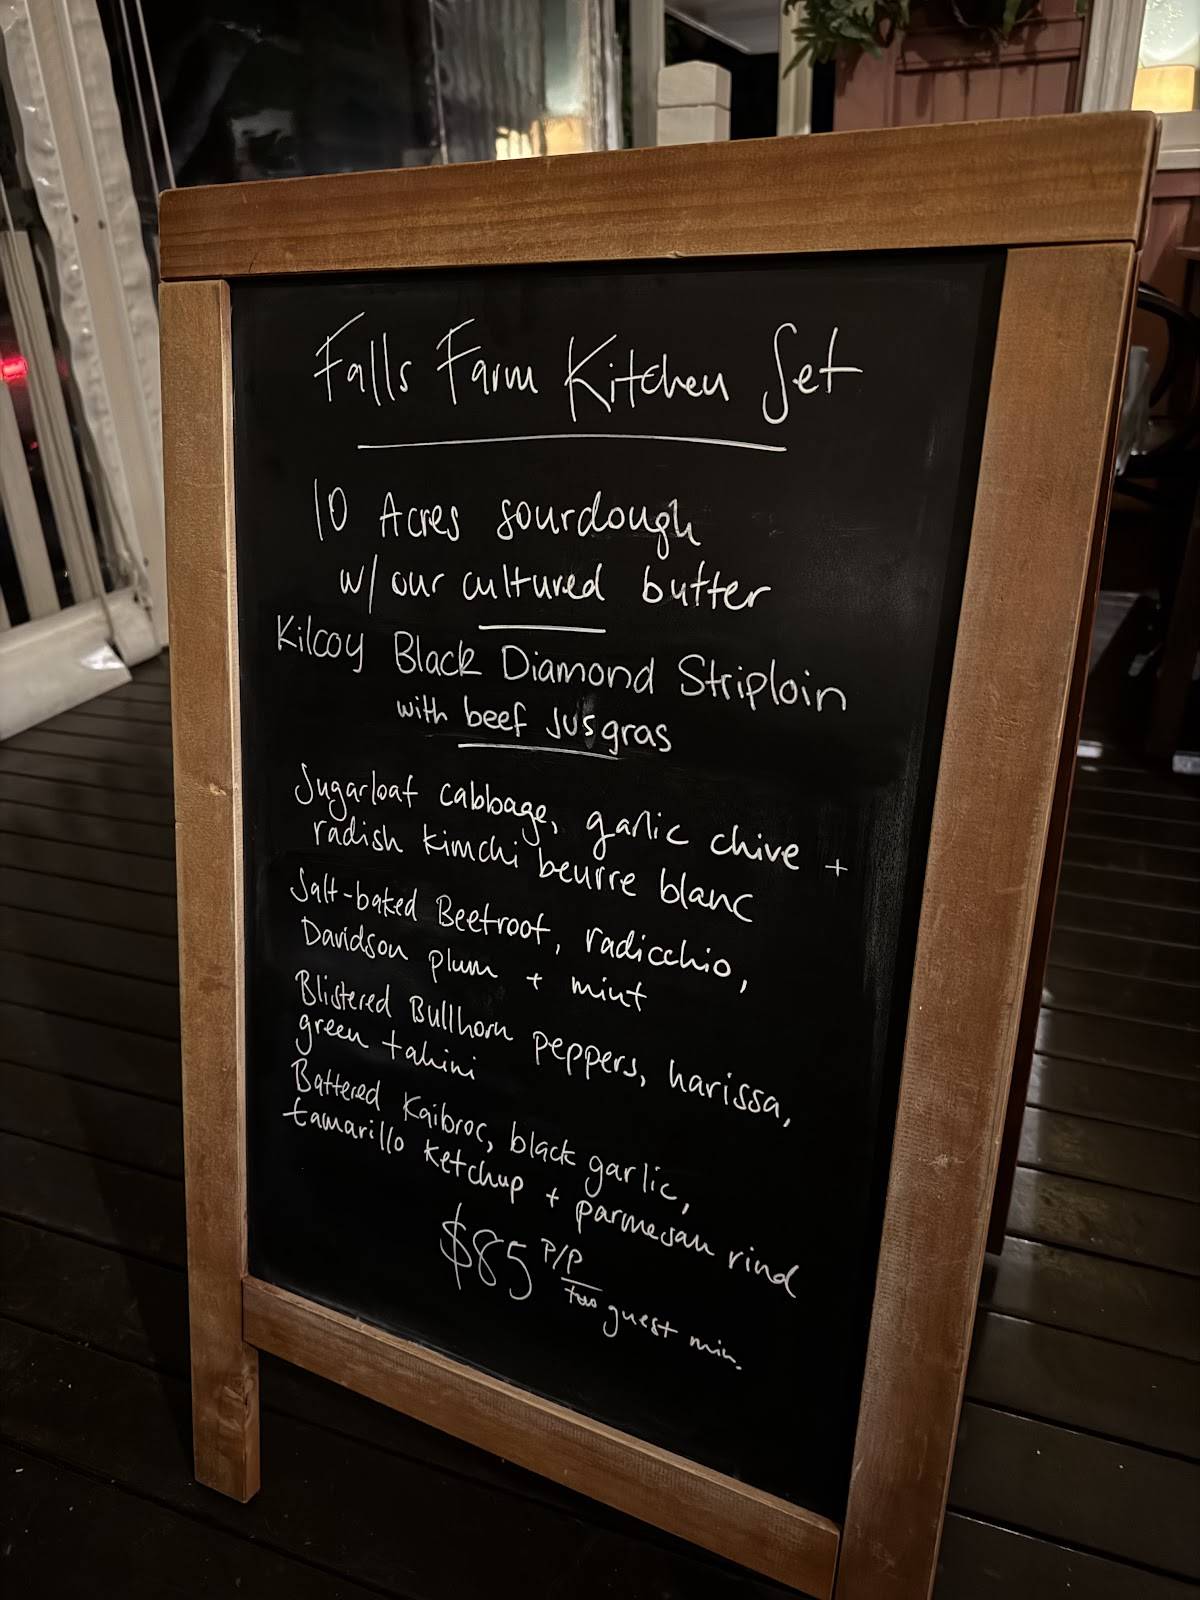 Falls Farm Kitchen Set
10 Acres sourdough
w/ our cultured butter
Kilcoy Black Diamond Striploin
with beef jus gras
Sugarloaf cabbage, garlic chive +
radish kimchi beurre blanc
Salt-baked Beetroot, radicchio,
Davidson plum + mint
Blistered Bullhorn peppers, harissa,
green tahini
Battered Kaibroc, black garlic,
tamarillo ketchup + parmesan rind
$85 P/P
two guest min.